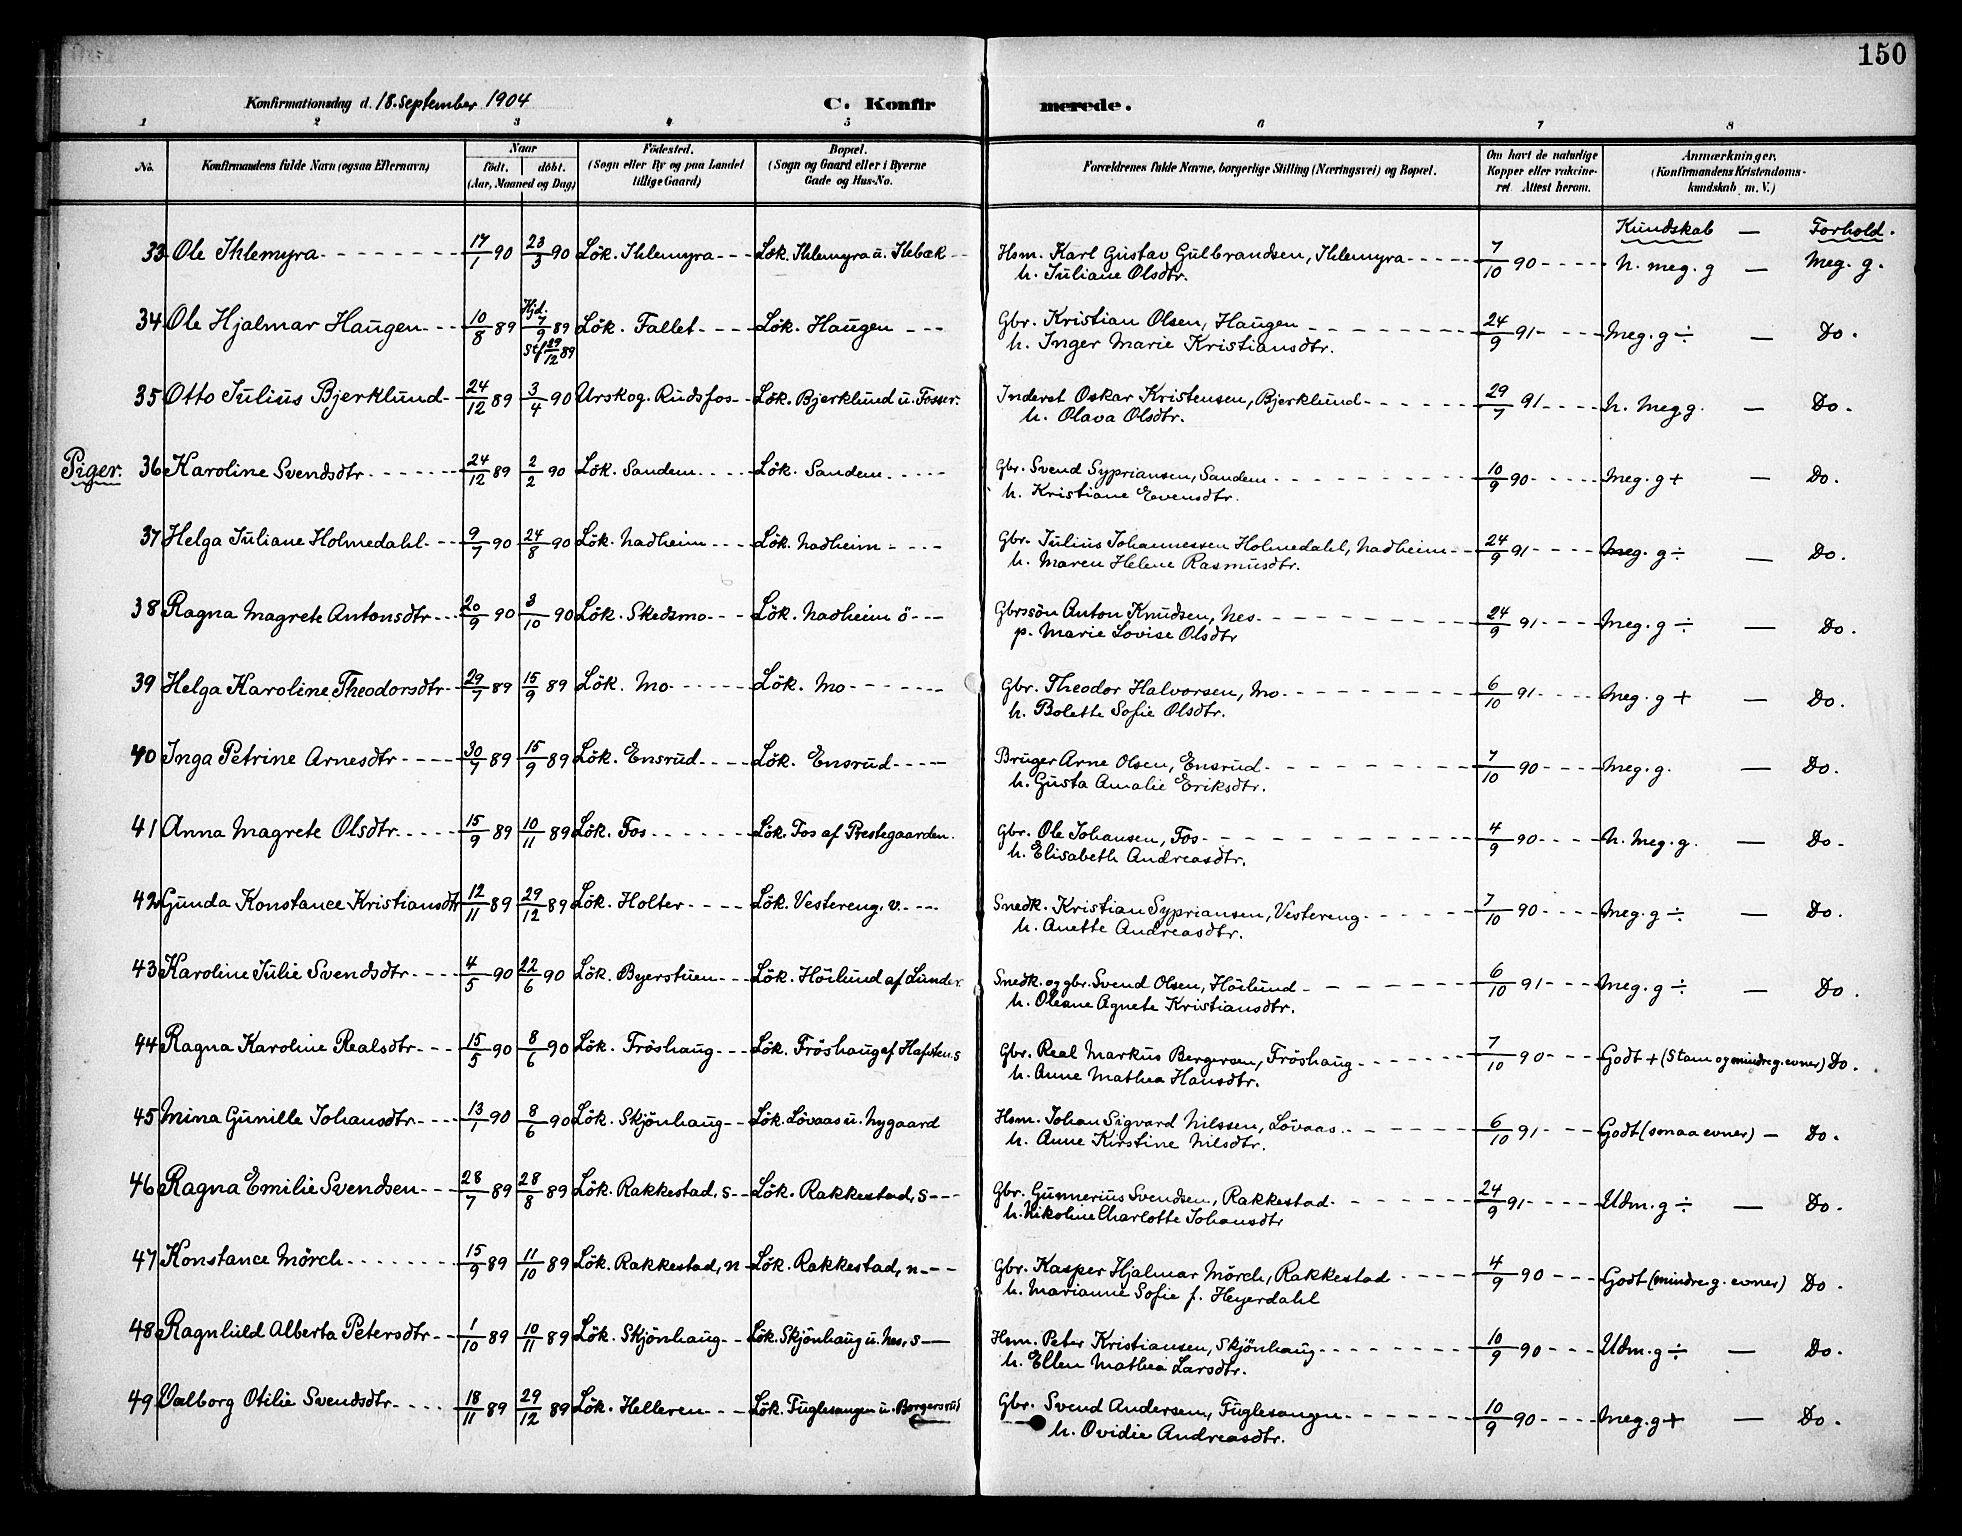 150
Konfirmationsdag d. 18. September 1904 C. Konfirmerede.
1 2 3 4 5 6 7 8
No. Konfirmandens fulde Navn (ogsaa Efternavn) Naar født. døbt. (Aar, Maaned og Dag) Fødested. (Sogn eller By og paa Landet tillige Gaard) Bopæl. (Sogn og Gaard eller i Byerne Gade og Hus-No. Forældrenes fulde Navne, borgerlige Stilling (Næringsvei) og Bopæl. Om havt de naturlige Kopper eller vakcineret Attest herom. Anmærkninger. (Konfirmandens Kristendomskundskab m. V.)
Kundskab — Forhold.
33 Ole Ihlemyra 17/1 90 23/3 90 Lök. Ihlemyra Lök. Ihlemyra u. Kebæk Hsm. Karl Gustav Gulbrandsen, Ihlemyra 7/10 90 N. meg. g — Meg. g.
h. Juliane Olsdtr.
34 Ole Hjalmar Haugen 10/8 89 Hjd. 7/9 89 Stf 29/12 89 Lök. Fallet Lök. Haugen Gbr. Kristian Olsen, Haugen 24/9 91 Meg. g ÷ — Do.
h. Inger Marie Kristiansdtr.
35 Otto Julius Bjerklund 24/12 89 3/4 90 Urskog. Rudsfos Lök. Bjerklund u. Fosser. Inderst Oskar Kristensen, Bjerklund 29/7 91 N. Meg g. — Do.
h. Olava Olsdtr.
Piger. 36 Karoline Svendsdtr 24/12 89 2/2 90 Lök. Sandem Lök. Sandem Gbr. Svend Sypriansen, Sandem 10/9 90 Meg. g + — Do.
h. Kristiane Evensdtr.
37 Helga Juliane Holmedahl 9/7 90 24/8 90 Lök. Nadheim Lök. Nadheim Gbr. Julius Johannessen Holmedahl, Nadheim 24/9 91 Meg. g ÷ — Do.
h. Maren Helene Rasmusdtr.
38 Ragna Magrete Antonsdtr 20/9 90 3/10 90 Lök. Skedsmo Lök. Nadheim ö Gbrssön Anton Knudsen, Nes 24/9 91 Meg. g ÷ — Do.
p. Marie Lovise Olsdtr
39 Helga Karoline Theodorsdtr 29/7 89 15/9 89 Lök. Mo Lök. Mo Gbr. Theodor Halvorsen, Mo 6/10 91 Meg. g + — Do.
h. Bolette Sofie Olsdtr.
40 Inga Petrine Arnesdtr 30/7 89 15/9 89 Lök. Ensrud Lök. Ensrud Bruger Arne Olsen, Ensrud 7/10 90 Meg. g. — Do.
h. Gusta Amalie Eriksdtr.
41 Anna Magrete Olsdtr 15/9 89 10/11 89 Lök. Fos Lök. Fos af Prestegaarden. Gbr. Ole Johansen, Fos 4/9 90 N. Meg. g. — Do.
h. Elisabeth Andreasdtr.
42 Gunda Konstance Kristiansdtr 12/11 89 29/12 89 Lök. Holter Lök. Vestereng. v. Snedk. Kristian Sypriansen, Vestereng 7/10 90 Meg. g ÷ — Do.
h. Anette Andreasdtr.
43 Karoline Julie Svendsdtr 4/5 90 22/6 90 Lök. Byerstuen Lök. Höilund af Lunder. Snedk. og gbr. Svend Olsen, Höilund 6/10 91 Meg. g ÷ — Do.
h. Oleane Agnete Kristiansdtr.
44 Ragna Karoline Realsdtr 15/5 90 8/6 90 Lök. Fröshaug Lök. Fröshaug af Hafsten, s Gbr. Real Markus Bergersen, Fröshaug 7/10 90 Godt + (Stam og mindre g. evner) Do.
h. Anne Mathea Hansdtr.
45 Mina Gunille Johansdtr 13/1 90 8/6 90 Lök. Skjönhaug Lök. Lövaas u. Nygaard Hsm. Johan Sigvard Nilssen, Lövaas 6/10 91 Godt (smaa evner) — Do.
h. Anne Kirstine Nilsdtr.
46 Ragna Emilie Svendsen 28/7 89 28/8 89 Lök. Rakkestad, s Lök. Rakkestad, s Gbr. Gunnerius Svendsen, Rakkestad 24/9 91 Udm. g ÷ — Do.
h. Nikoline Charlotte Johansdtr
47 Konstance Mörch 15/9 89 11/10 89 Lök. Rakkestad, n Lök. Rakkestad, n Gbr. Kasper Hjalmar Mörch, Rakkestad 4/9 90 Godt (mindre g. evner) Do.
h. Marianne Sofie f. Heyerdahl
48 Ragnhild Alberta Petersdtr 1/10 89 10/11 89 Lök. Skjönhaug Lök. Skjönhaug u. Nes, s Hsm. Peter Kristiansen, Skjönhaug 10/9 90 Udm. g ÷ — Do.
h. Ellen Mathea Larsdtr.
49 Valborg Otilie Svendsdtr 18/11 89 29/12 89 Lök. Helleren Lök. Fuglesangen u. Borgersrud Gbr. Svend Andersen, Fuglesangen 10/9 90 Meg. g + — Do.
h. Ovidie Andreasdtr.